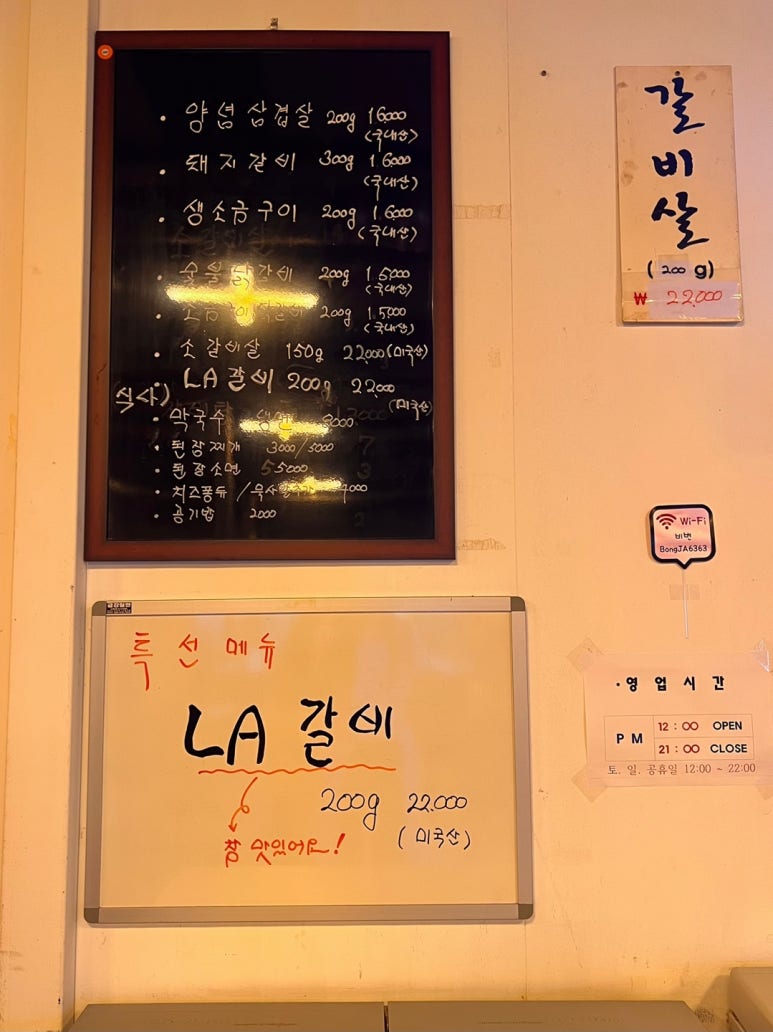 · 양념삼겹살 200g 16000
(국내산)
· 돼지갈비 300g 16000
(국내산)
· 생소금구이 200g 16000
(국내산)
숯불닭갈비 200g 15000
(국내산)
200g 15000
(국내산)
· 소갈비살 150g 22,000 (미국산)
· LA갈비 200g 22,000
(미국산)
식사)
· 막국수 8000
· 된장찌개 3000/5000
· 된장소면 5000
· 치즈퐁듀 /
· 공기밥 2000
갈
비
살
(200g)
₩ 22,000
Wi-Fi
비번
BongJA6363
특선메뉴
LA갈비
200g 22.000
(미국산)
참 맛있어요!
· 영업시간
PM
12:00 OPEN
21:00 CLOSE
토. 일. 공휴일 12:00 ~ 22:00